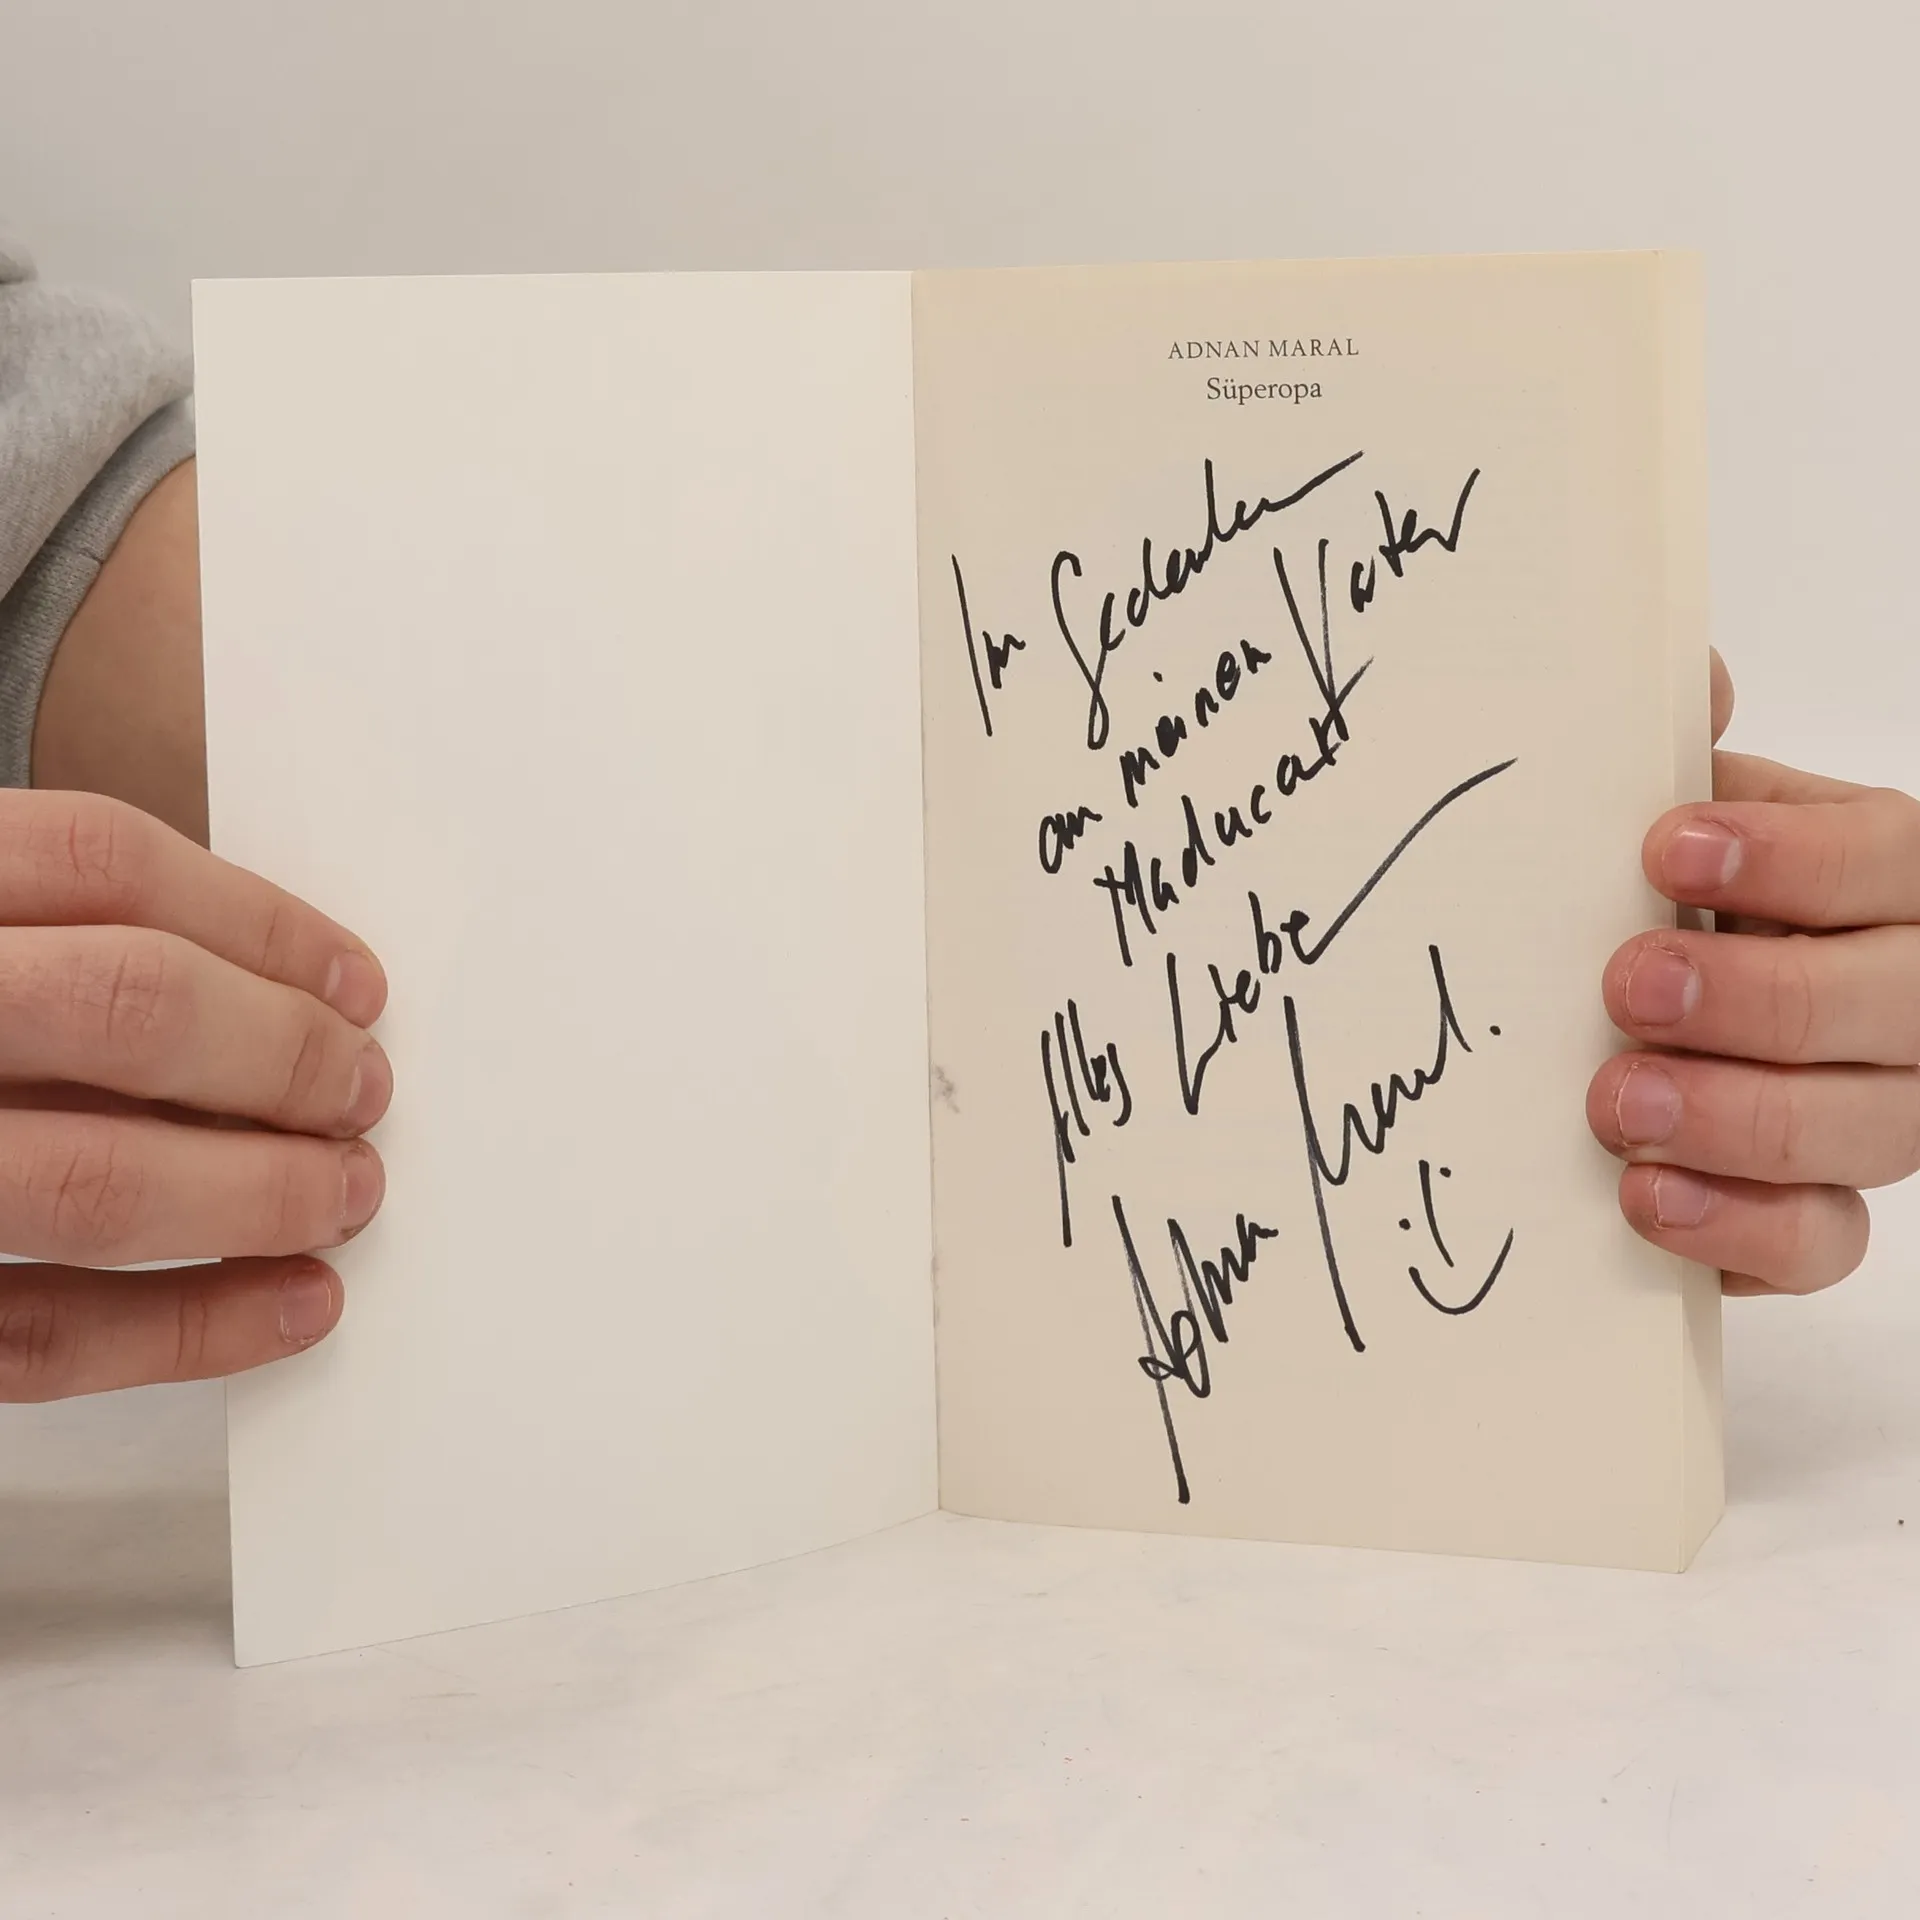 ADNAN MARAL
Süperopa
Im Gedenken
an meinen Vater
Alles Liebe
Adnan Maral.